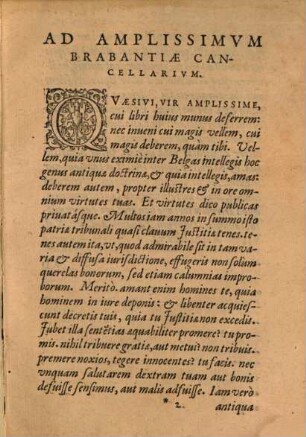 AD AMPLISSIMVM
BRABANTIÆ CAN-
CELLARIVM.
QVÆSIVI, VIR AMPLISSIME,
cui libri huius munus deferrem:
nec inueni cui magis vellem, cui
magis deberem, quàm tibi. Vel-
lem, quia vnus eximiè inter Belgas intellegis hoc
genus antiquæ doctrinæ, & quia intellegis, amas:
deberem autem, propter illustres & in ore omni
nium virtutes tuas. Et virtutes dico publicas
priuatásque. Multos iam annos in summo isto
patriæ tribunali quasi clauum Iustitiæ tenes. te-
nes autem ita, vt, quod admirabile sit in tam va-
ria & diffusa iurisdictione, effugeris non solùm
querelas bonorum, sed etiam calumnias impro-
borum. Meritò. amant enim homines te, quia
hominem in iure deponis: & libenter acquies-
cunt decretis tuis, quia tu Iustitiâ non excedis.
Iubet illa sentētias æquabiliter promere? tu pro-
mis. nihil tribuere gratiæ, aut metui? non tribuis.
premere noxios, tegere innocentes? tu facis. nec
vnquam salutarem dextram tuam aut bonis
defuisse sensimus, aut malis adfuisse. Iam verò
* 2 antiqua